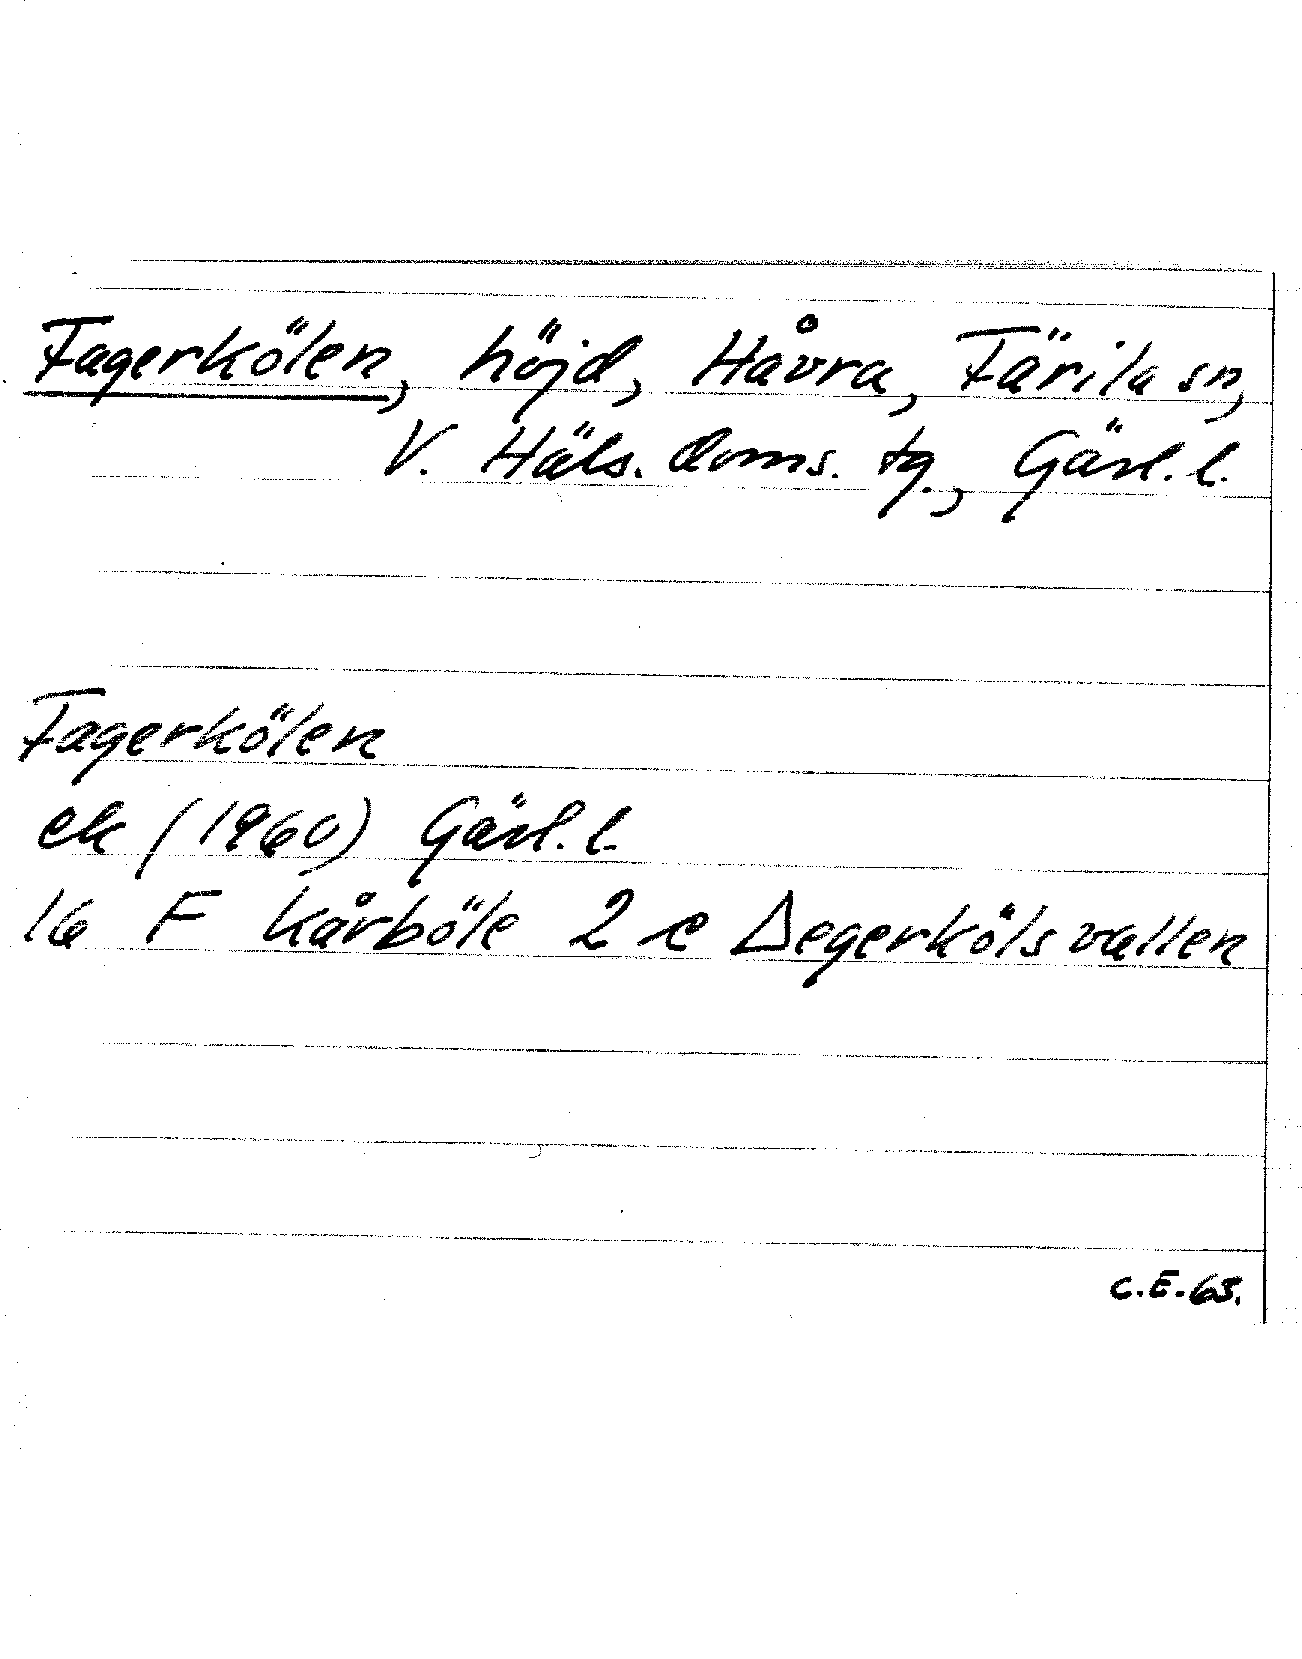 Fagerkölen, höjd, Håvra, Färila sn,
V. Häls. doms. tg., Gävl. l.
Fagerkölen
ek (1960) Gävl. l.
16 F Kårböle 2 e Degerkölsvallen
C.E. 65.